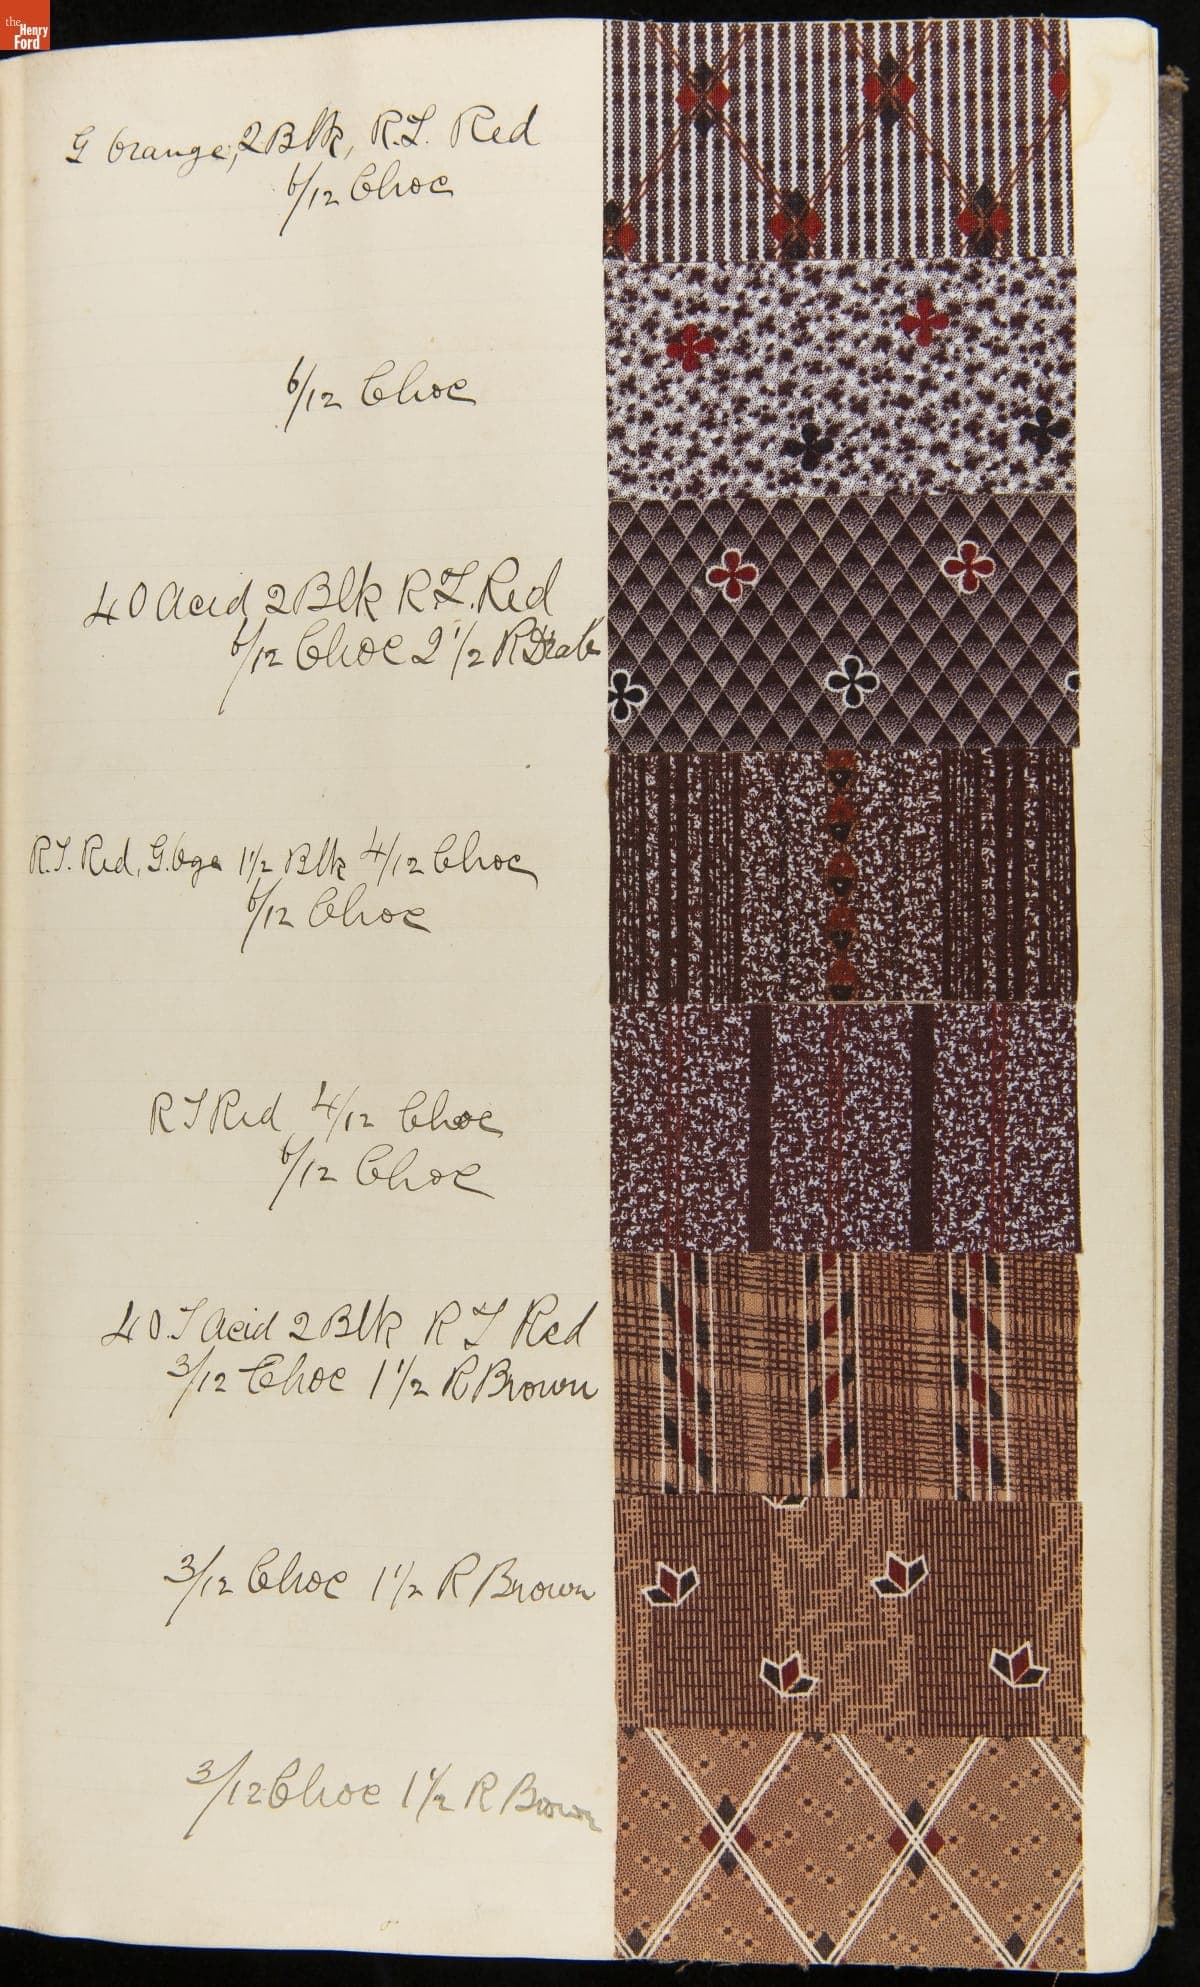 the Henry Ford
G Orange, 2 Blk, R.T. Red
6/12 Choc
6/12 Choc
40 Acid 2 Blk R.T. Red
6/12 Choc 2 1/2 R Drab
R.T. Red, G. Oge 1 1/2 Blk 4/12 Choc
6/12 Choc
R T Red 4/12 Choc
6/12 Choc
40.T Acid 2 Blk R T Red
3/12 Choc 1 1/2 R Brown
3/12 Choc 1 1/2 R Brown
3/12 Choc 1 1/2 R Brown